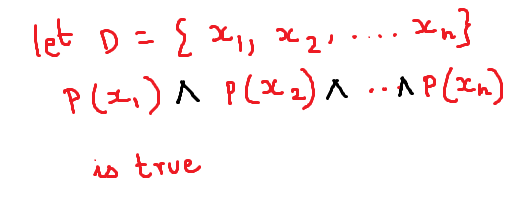 let D = { x₁, x₂, .... xₙ}
P(x₁) ∧ P(x₂) ∧ .. ∧ P(xₙ)
is true